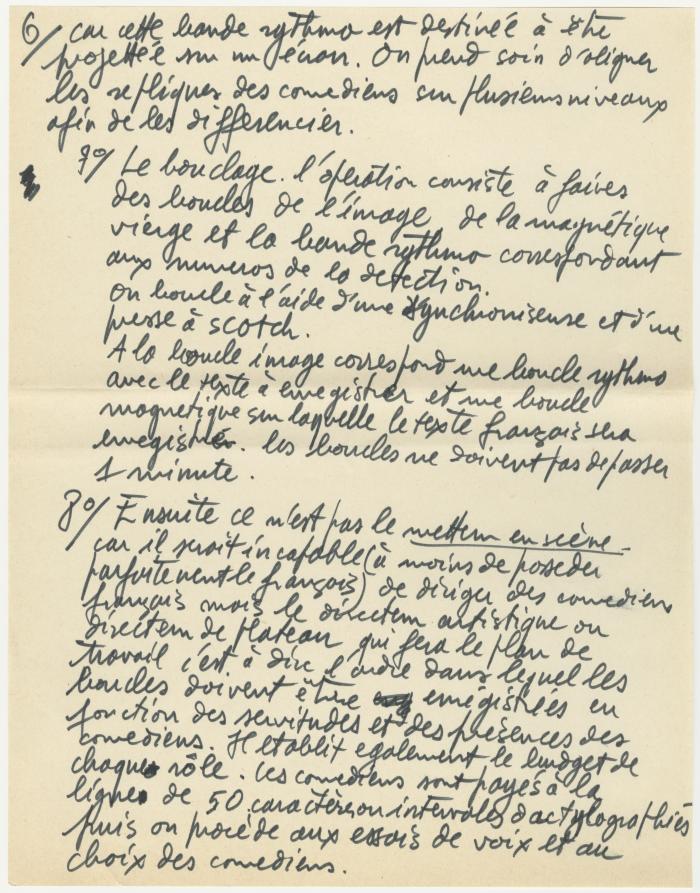 6/ car cette bande rythmo est destinéé à être
projettéé sur un écran. On prend soin d'aligner
les repliques des comediens sur plusieurs niveaux
afin de les differencier.
7°/ Le bouclage. l'opération consiste à faires
des boucles de l'image, de la magnétique
vierge et la bande rythmo correspondant
aux numeros de la detection.
On boucle à l'aide d'une synchroniseuse et d'une
presse à scotch.
A la boucle image correspond une boucle rythmo
avec le texte à enregistrer et une boucle
magnetique sur laquelle le texte français sera
enregistré. les boucles ne doivent pas depasser
1 minute.
8°/ Ensuite ce n'est pas le metteur en scène
car il serait incapable (à moins de posseder
parfaitement le français) de diriger des comediens
français mais le directeur artistique ou
directeur de plateau qui fera le plan de
travail c'est à dire l'ordre dans lequel les
boucles doivent être enrégistréés en
fonction des servitudes et des présences des
comediens. Il etablit egalement le budget de
chaque rôle. Les comediens sont payés à la
ligne de 50 caractères ou intervales dactylographiés
puis on procéde aux essais de voix et au
choix des comediens.